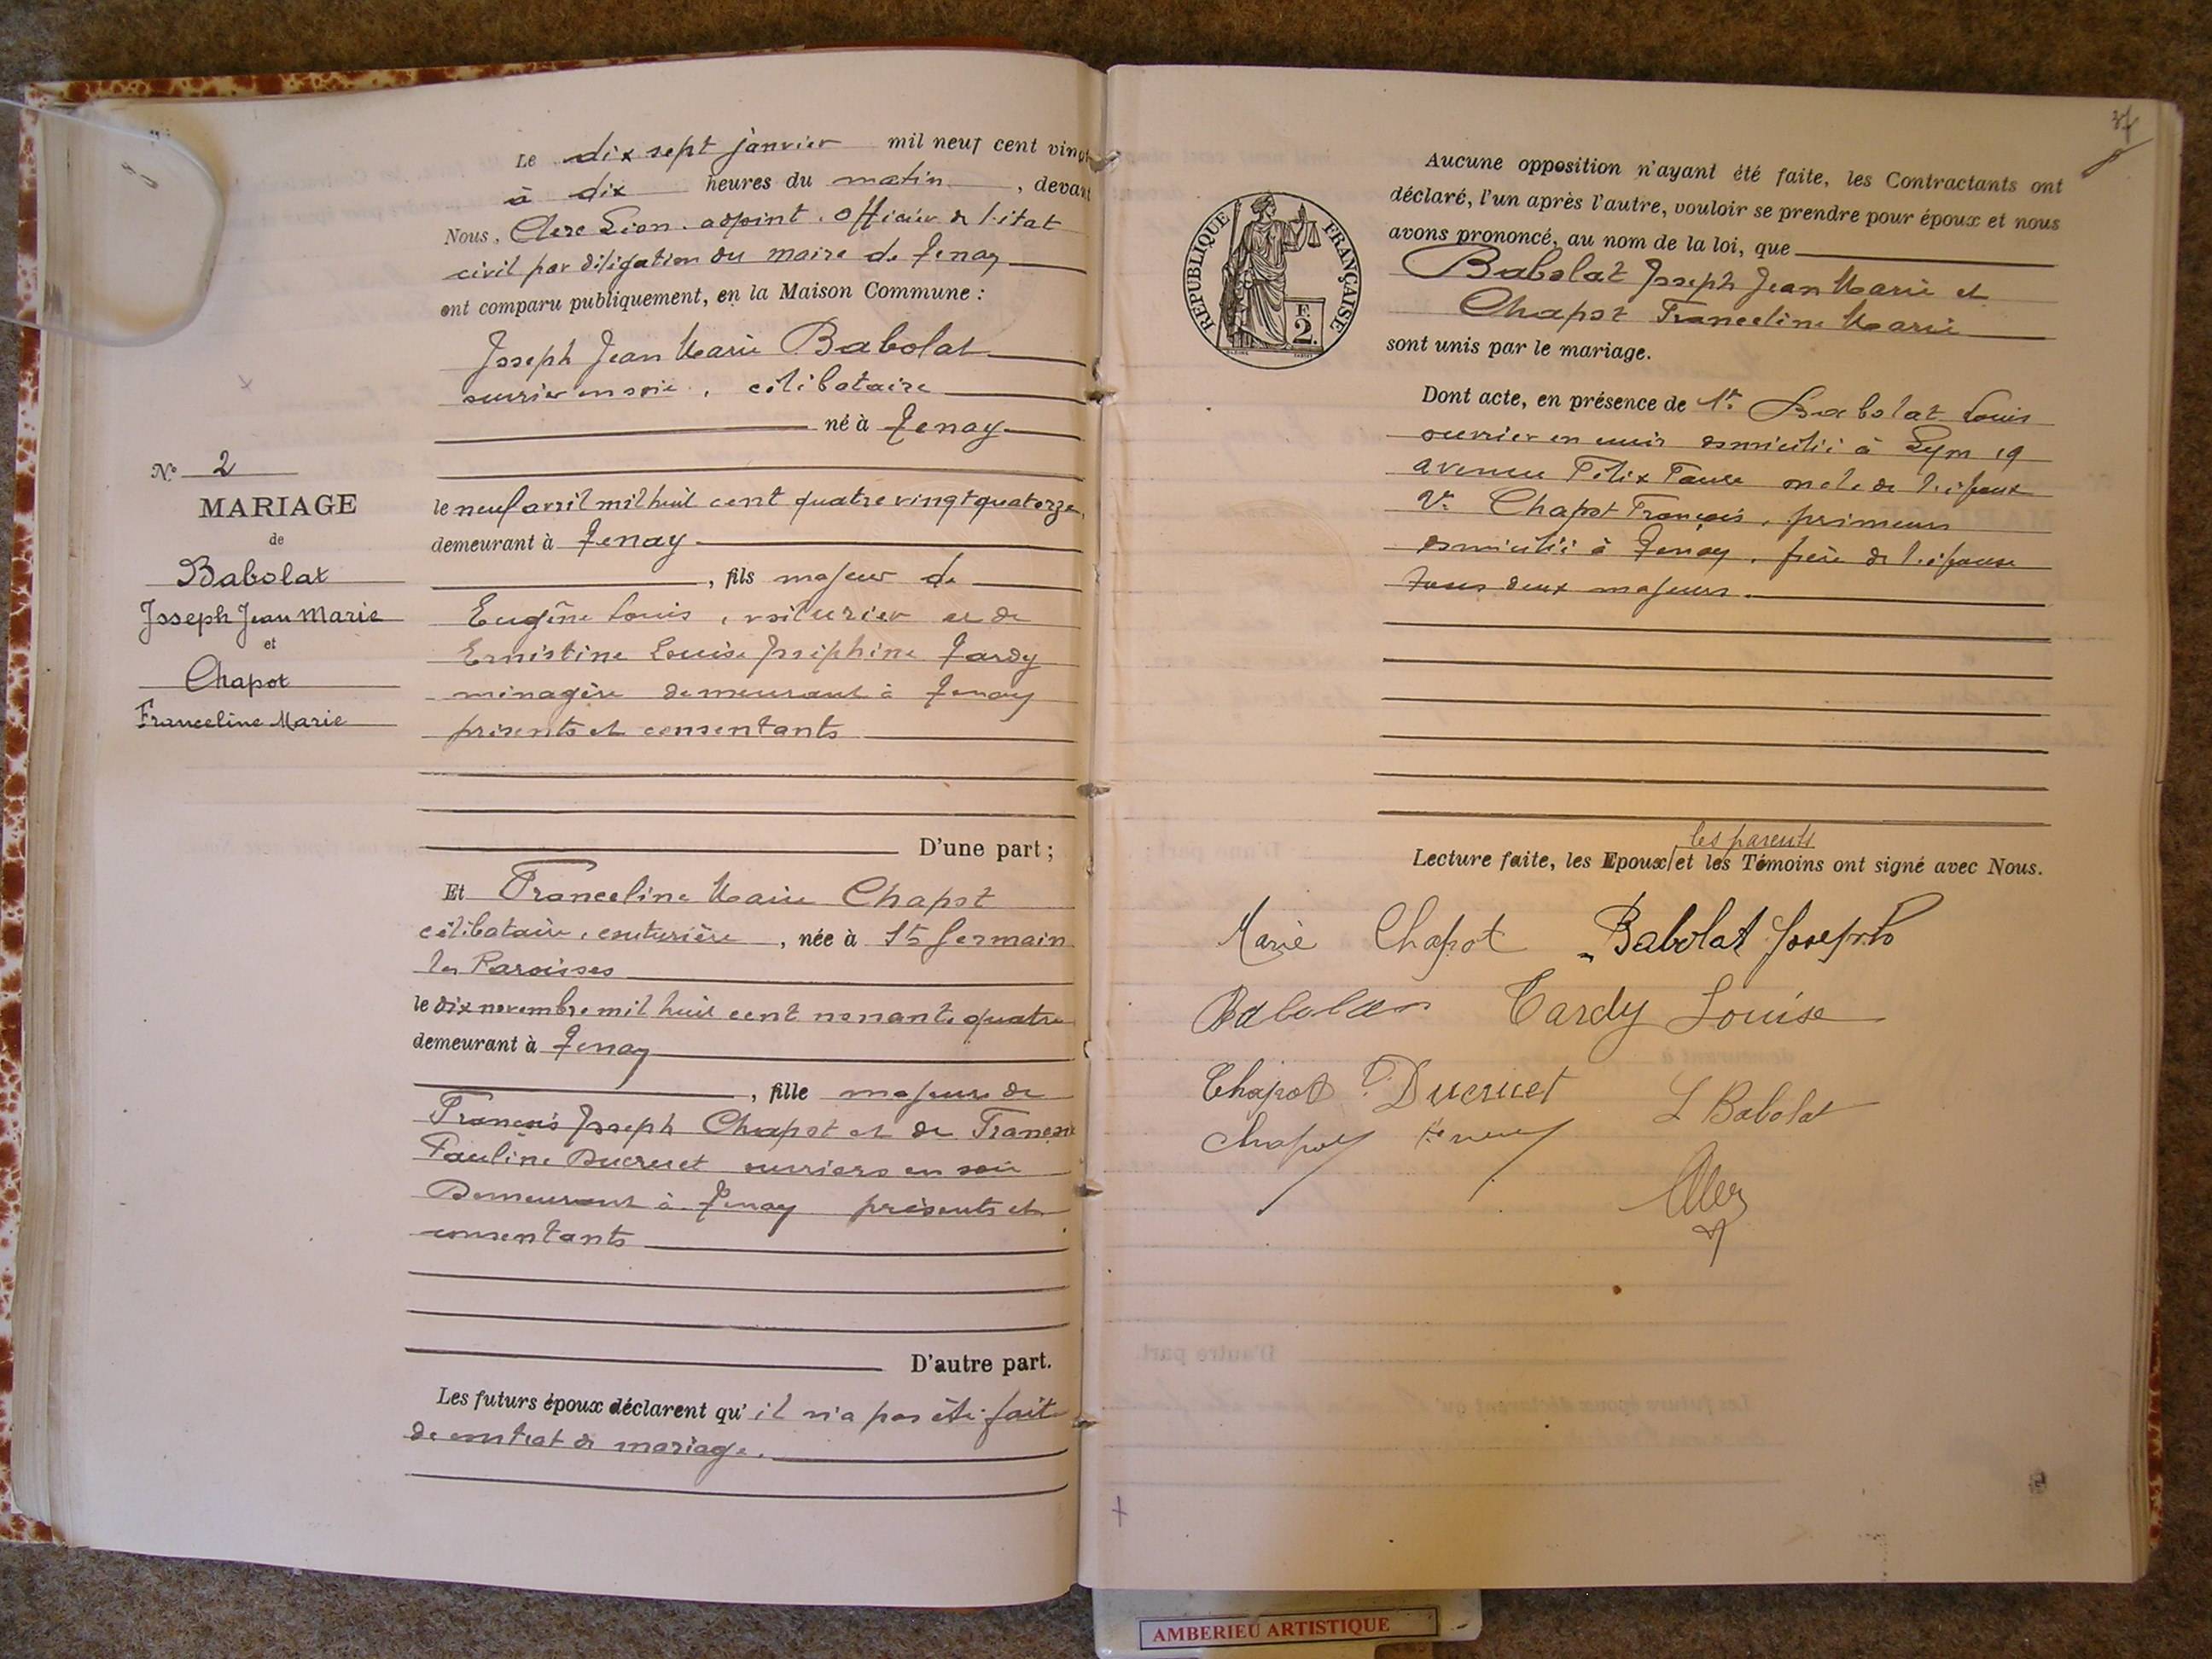 Le dix sept janvier mil neuf cent vingt
à dix heures du matin, devant
Nous, Clerc Léon adjoint officier de l'état
civil par délégation du maire de Tenay
ont comparu publiquement, en la Maison Commune :
Joseph Jean Marie Babolat
ouvrier en soie, célibataire
né à Tenay
le neuf avril mil huit cent quatre vingt quatorze,
demeurant à Tenay
, fils majeur de
Eugène Louis, voiturier et de
Ernestine Louise Joséphine Tardy
ménagère demeurant à Tenay
présents et consentants
D'une part ;
Et Franceline Marie Chapot
célibataire, couturière, née à St Germain
les Paroisses
le dix novembre mil huit cent nonante quatre
demeurant à Tenay
, fille majeure de
François Joseph Chapot et de
Pauline Ducruet ouvriers en soie
Demeurant à Tenay présents et
consentants
D'autre part.
Les futurs époux déclarent qu'il n'a pas été fait
de contrat de mariage.
N° 2
MARIAGE
de
Babolat
Joseph Jean Marie
et
Chapot
Franceline Marie
37
REPUBLIQUE FRANÇAISE
F.
2.
Aucune opposition n'ayant été faite, les Contractants ont
déclaré, l'un après l'autre, vouloir se prendre pour époux et nous
avons prononcé, au nom de la loi, que
Babolat Joseph Jean Marie et
Chapot Franceline Marie
sont unis par le mariage.
Dont acte, en présence de 1° Babolat Louis
ouvrier en domicilié à Lyon 19
avenue Félix Faure oncle de l'époux
2° Chapot François, primeurs
domicilié à Tenay, frère de l'épouse
tous deux majeurs.
les parents
Lecture faite, les Epoux et les Témoins ont signé avec Nous.
Marie Chapot Babolat Joseph
Babolat Tardy Louise
Chapot Ducruet
L Babolat
Chapot
AMBERIEU ARTISTIQUE